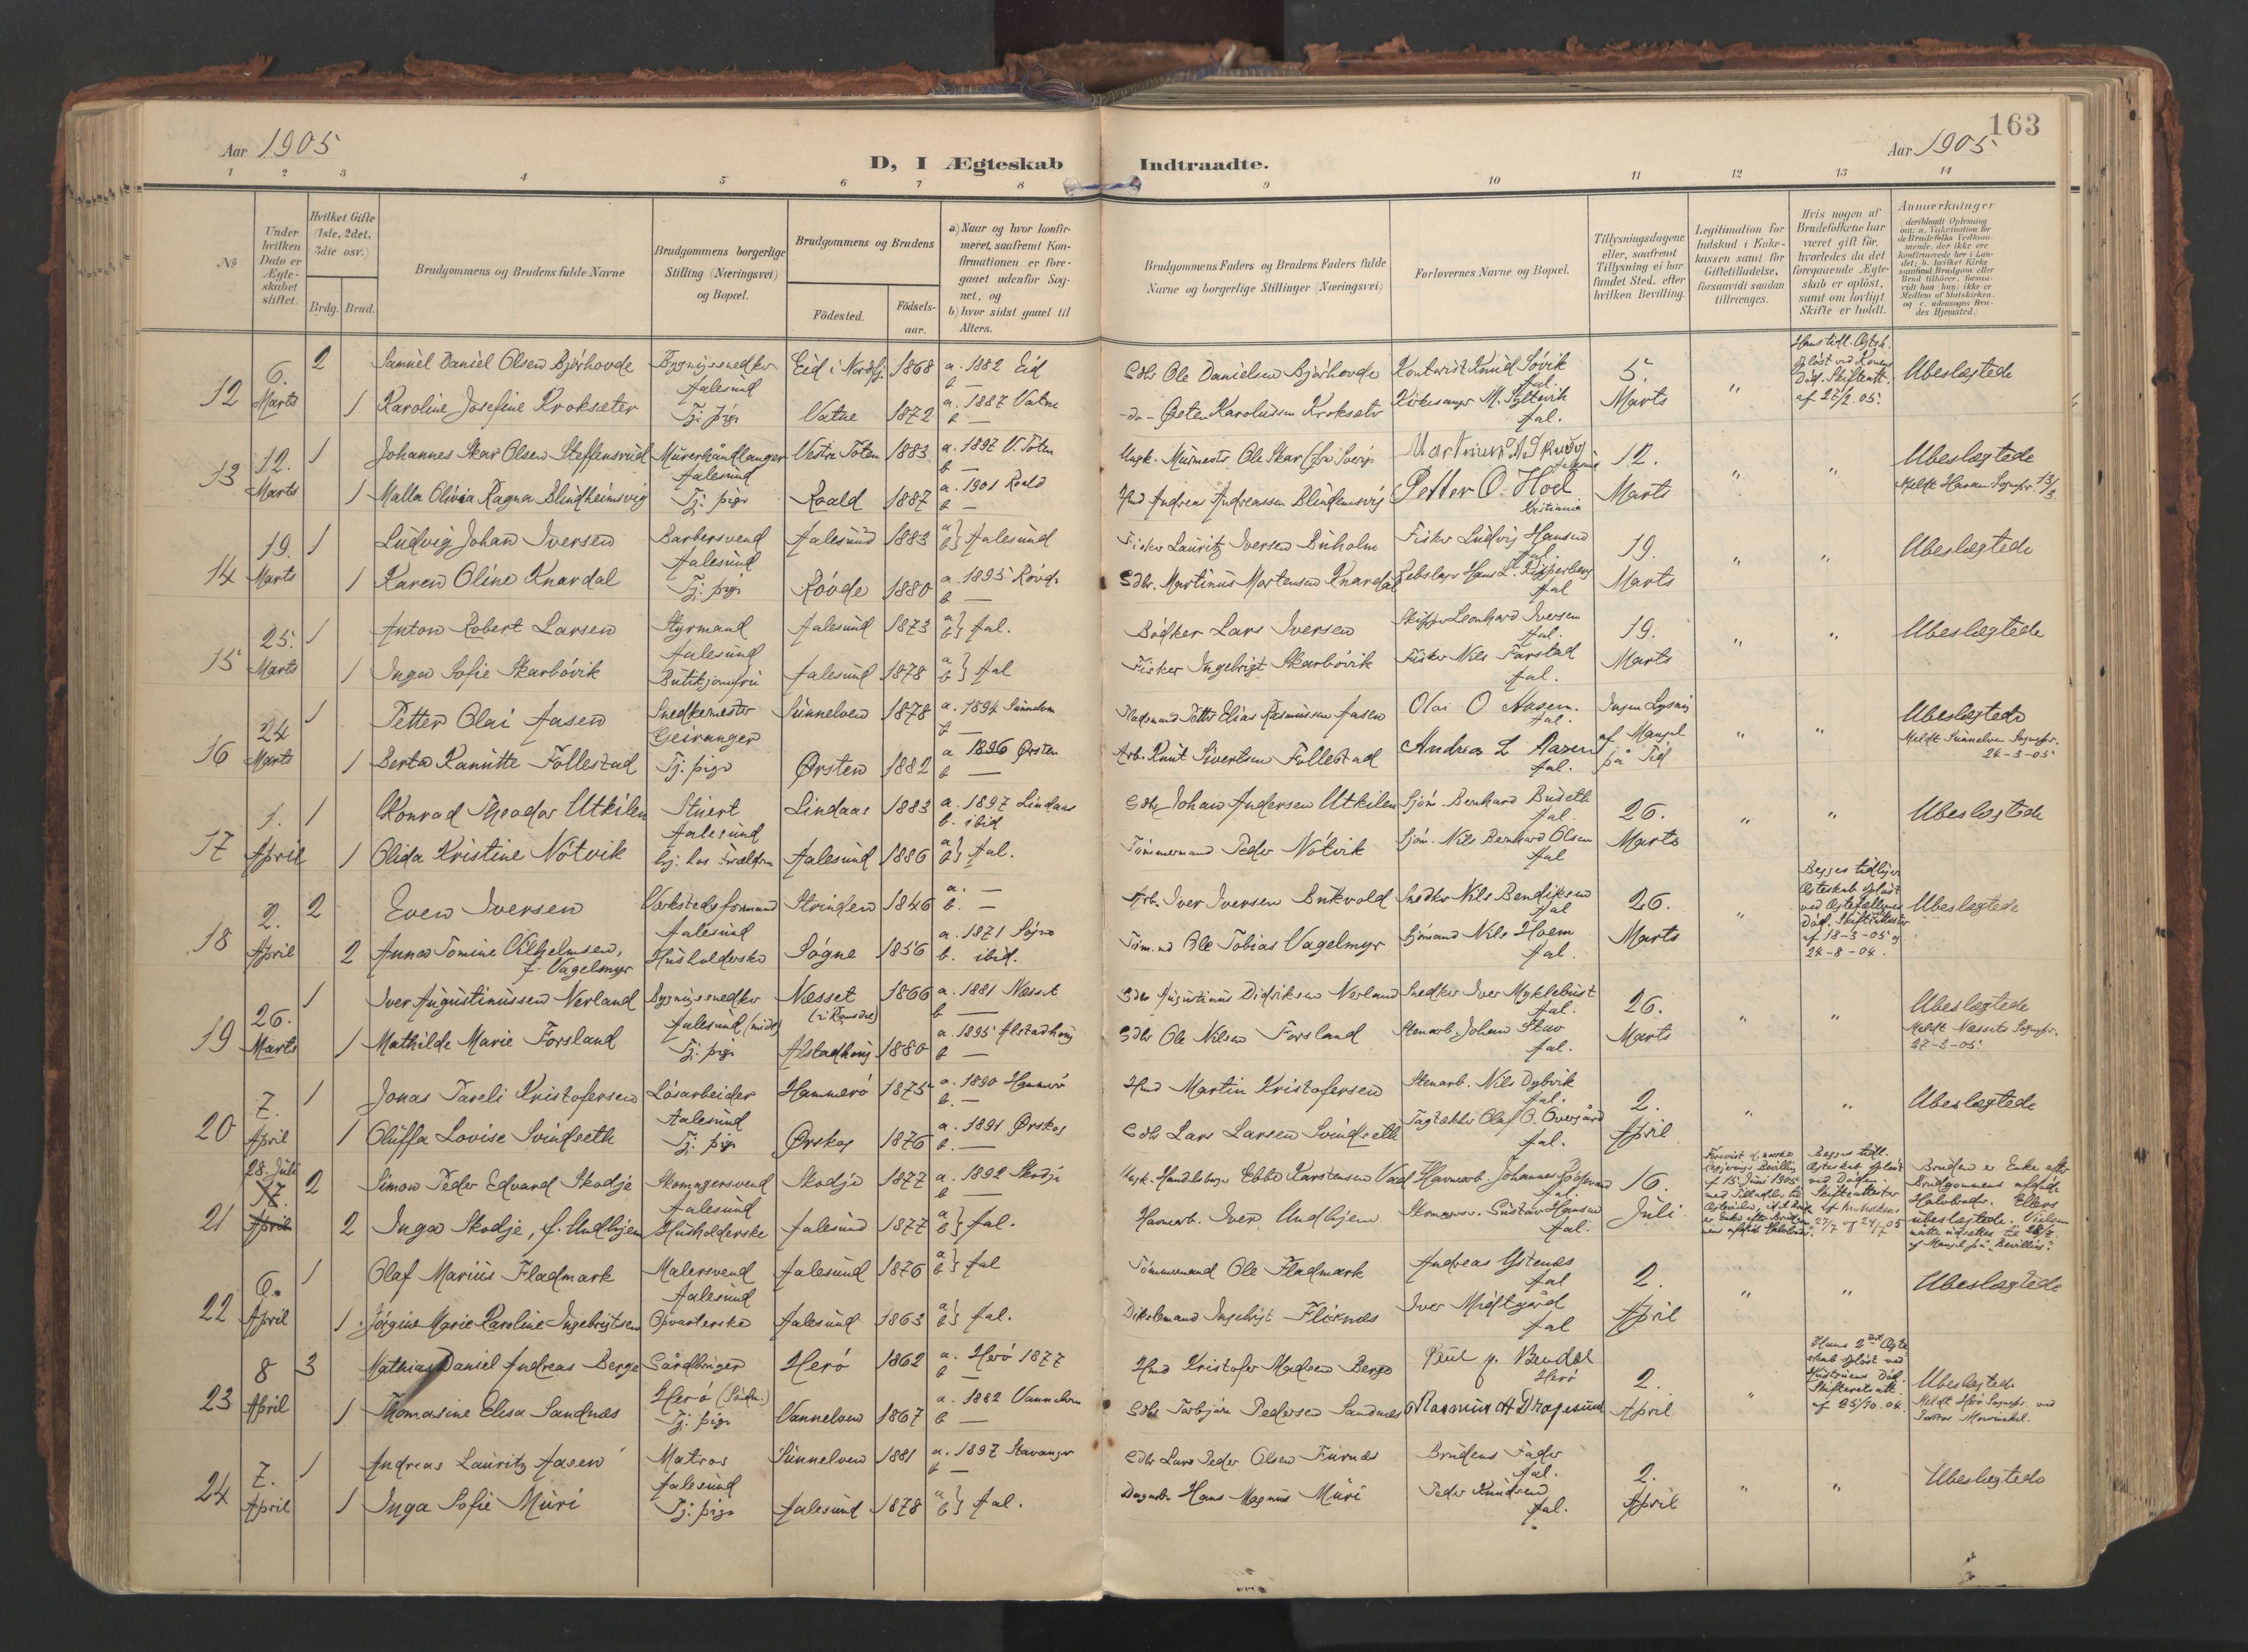 163
Aar 1905
Aar 1905
D, I Ægteskab Indtraadte.
1 2 3 4 5 6 7 8 9 10 11 12 13 14
No
Under hvilken Dato er Ægteskabet stiftet.
Hvilket Gifte (1ste, 2det, 3die osv.)
Brdg. Brud.
Brudgommens og Brudens fulde Navne
Brudgommens borgerlige Stilling (Næringsvei) og Bopæl.
Brudgommens og Brudens
Födested.
Födselsaar.
a) Naar og hvor konfirmeret, saafremt Konfirmationen er foregaaet udenfor Sognet, og
b) hvor sidst gaaet til Alters.
Brudgommens Faders og Brudens Faders fulde Navne og borgerlige Stillinger (Næringsvei)
Forlovernes Navne og Bopæl.
Tillysningsdagene eller, saafremt Tillysning ei har fundet Sted, efter hvilken Bevilling.
Legitimation for Indskud i Enkekassen samt for Giftetilladelse, forsaavidt saadan tiltrænges.
Hvis nogen af Brudefolkene har været gift før, hvorledes da det foregaaende Ægteskab er oplöst, samt om lovligt Skifte er holdt.
Anmærkninger
12 6. Marts 2 Samuel Daniel Olsen Bjørhovde Bygningssnedker Aalesund Eid i Nordfj. 1868 a. 1882 Eid b — Gdbr Ole Danielsen Bjørhovde Kontorist Knud Søvik Aal. 5. Marts " Hans tidl. Ægtsk. opløst ved Konens Død. Skifteatt. af 27/2. 05. Ubeslægtede
1 Karoline Josefine Krokseter Tj. pige Vatne 1872 a. 1887 Vatne b — -do- Østen Karolussen Krokseter Kirkesanger M. Syltevik Aal.
13 12. Marts 1 Johannes Skar Olsen Steffensrud Murerhåndlanger Aalesund Vestre Toten 1883 a. 1897 V. Toten b — Ungk. Murmestr. Ole Skar (fra Sverige Aalesund 12. Marts " " Ubeslægtede
1 Malla Olivia Ragna Blindheimsvig Tj. pige Roald 1887 a. 1901 Roald b — Hmd Andreas Andreassen Blindemsvig Petter O. Hoel Kristiania Meldt Haram Sognepr. 13/3.
14 19. Marts 1 Ludvig Johan Iversen Barbersvend Aalesund Aalesund 1883 a b } Aalesund Fisker Lauritz Iversen Buholm Fisker Ludvig Hansen Aal. 19. Marts " " Ubeslægtede
1 Karen Oline Knardal Tj. pige Røvde 1880 a. 1895 Røvde b — Gdbr. Martinus Mortensen Knardal Rebslager Hans L. Kipperberg Aal
15 25. Marts 1 Anton Robert Larsen Styrmand Aalesund Aalesund 1873 a b } Aal. Bødker Lars Iversen Skipper Leonhard Iversen Aal. 19. Marts " " Ubeslægtede
1 Inga Sofie Skarbøvik Butikjomfru Aalesund 1878 a b } Aal Fisker Ingebrigt Skarbøvik Fisker Nils Farstad Aal.
16 24 Marts 1 Petter Olai Aasen Snedkermester Geiranger Sunnelven 1878 a. 1894 Sunnelven b — Pladsmand Petter Elias Rasmussen Aasen Olai O Aasen. Aal. Ingen Lysning af Mangel på Tid " " Ubeslægtede
1 Berta Kanutte Follestad Tj. pige Ørsten 1882 a 1896 Ørsten b — Arb. Knut Sivertsen Follestad Andreas L Aasen Aal. Meldt Sunnelven Sognepr. 24-3-05
17 1. April 1 Konrad Theodor Utkilen Stuert Aalesund Lindaas 1883 a. 1897 Lindaas b. ibid Gdbr Johan Andersen Utkilen Sjóm. Bernhard Buseth Aal. 26. Marts " " Ubeslægtede
1 Olida Kristine Nøtvik hj. hos Forældrene Aalesund 1886 a b } Aal. Tømmermand Peder Nøtvik Sjóm. Nils Bernhard Olsen Aal
18 2. April 2 Even Iversen Verkstedsformand Aalesund Strinden 1846 a. — b. — Arb. Iver Iversen Bukvold Snedker Nils Bendiksen Aal 26. Marts " Begges tidligere Ægteskab opløst ved Ægtefællernes Død. Skifteattester af 18-3-05 og 24-8-04. Ubeslægtede
2 Anna Tomine Vilhelmsen, f. Vagelmyr Husholderske Søgne 1856 a. 1871 Søgne b. ibid. Tøm.md Ole Tobias Vagelmyr Sjømand Nils Hoem Aal.
19 26. Marts 1 Iver Augustinussen Nerland Bygningssnedker Aalesund (midl) Næsset (i Romsdal) 1866 a. 1881 Næsset b — Gdbr Augustinus Didriksen Nerland Snedker Iver Myklebust Aal. 26. Marts " " Ubeslægtede
1 Mathilde Marie Forsland Tj. pige Alstadhaug 1880 a. 1895 Alstadhaug b — Gdbr Ole Nilsen Forsland Stenarb. Johan Stav Aal. Meldt Næssets Sognepr. 27-3-05.
20 7. April 1 Jonas Pareli Kristofersen Løsarbeider Aalesund Hammerø 1875 a. 1890 Hammerø b. — Hmd Martin Kristofersen Stenarb. Nils Dybvik Aal. 2. April " " Ubeslægtede
1 Oluffa Lovise Svindseth Tj. pige Ørskog 1876 a. 1891 Ørskog b. — Gdbr Lars Larsen Svindseth Tagtækker Olaf O. Øvergård Aal.
21 28. Juli 17. April 2 Simon Peder Edvard Skodje Skomagersvend Aalesund Skodje 1877 a. 1892 Skodje b — Ungk. Handelsborger Ebbe Karstensen Havnearb. Johannes Aal. 16. Juli Forevist d. norske Regjerings Bevilling af 15 Juni 1905 Begges tidl. Ægteskab opløst ved Døden. Skifteattester 27/7 og 24/7 05 Bruden er Enke efter Brudgommens afdøde Halvbroder. Ellers ubeslægtede. Vielsen måtte udsættes til 28/7. af Mangel på "Bevilling".
2 Inga Skodje, f. Undhjem Husholderske Aalesund 1877 a b } Aal. Havnearb. Iver Undhjem Skomagersv. Gustav Hansen Aal.
22 6. April 1 Olaf Marius Fladmark Malersvend Aalesund Aalesund 1876 a b } Aal Tømmermand Ole Fladmark Andreas Ystenes Aal 2. April " " Ubeslægtede
1 Jørgine Marie Karoline Ingebrigtsen Opvarterske Aalesund 1863 a b } Aal. Dikslemand Ingebrigt Flisnes Iver Midtgård Aal
23 8 April 3 Mathias Daniel Andreas Berge Gårdbruger Herø (Søndm.) Herø 1862 a. Herø 1877 b — Hmd Kristofer Madsen Berge Herø 2. April " Hans 2det Ægteskab opløst ved Hustruens Død. Skifteretsatt. af 25/10.04. Ubeslægtede
1 Thomasine Elisa Sandnes Tj. pige Vannelven 1867 a. 1882 Vannelven b — Gdbr Torbjørn Pedersen Sandnes Rasmus A Dragesund Meldt Herø Sognepr. ved Pastor
24 7. April 1 Andreas Lauritz Aasen Matros Aalesund Sunnelven 1881 a. 1897 Stavanger b — Gdbr Lars Peder Olsen Furnes Brudens Fader Aal. 2. April " " Ubeslægtede
1 Inga Sofie Muri Tj. pige Aalesund 1878 a b } Aal. Dagarb. Hans Magnus Muri Peder Knudsen Aal.